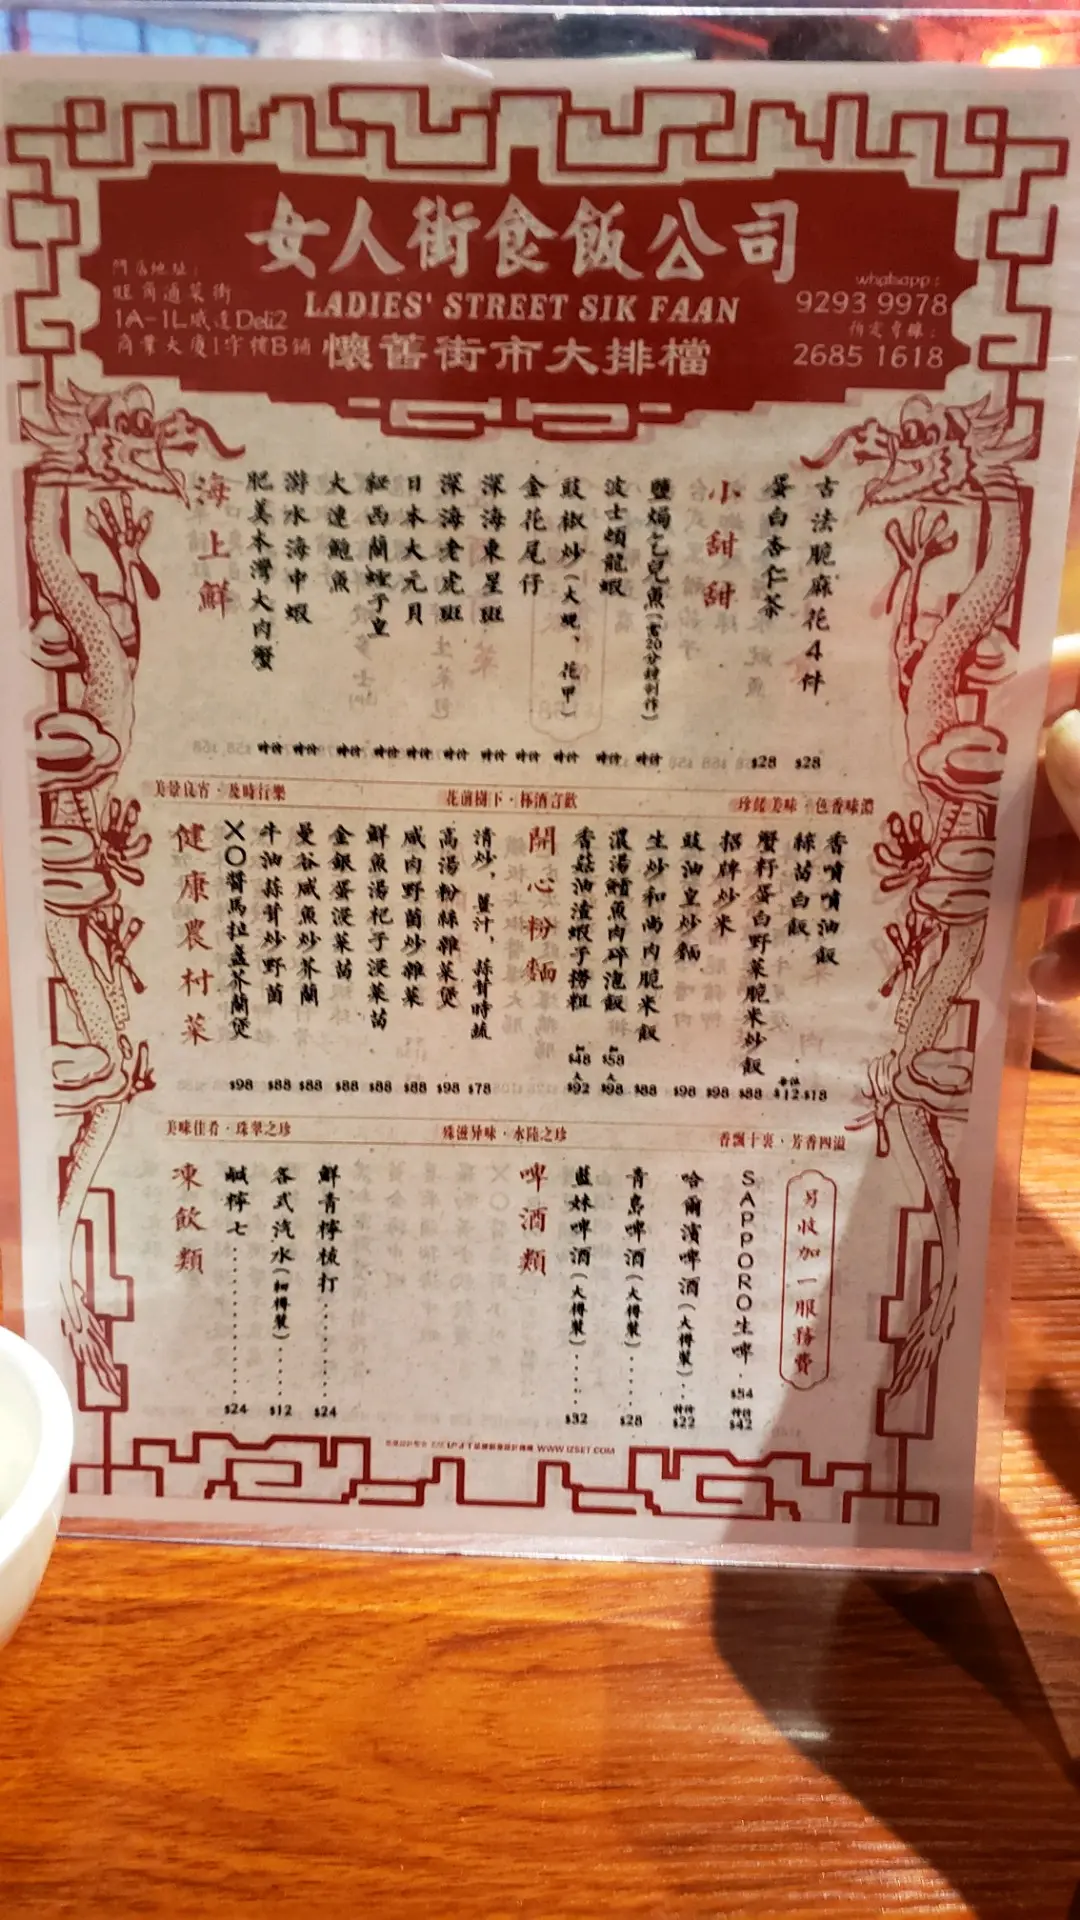 女人街食飯公司
LADIES' STREET SIK FAAN
懷舊街市大排檔
門店地址：
旺角通菜街
1A-1L威達Deli2
商業大廈1字樓B鋪
whatsapp：
9293 9978
預定專線：
2685 1618
海上鮮
肥美本灣大肉蟹 時價
游水海中蝦 時價
大連鮑魚 時價
紐西蘭蟶子皇 時價
日本大元貝 時價
深海老虎斑 時價
深海東星斑 時價
金花尾仔 時價
豉椒炒（大蜆、花甲） 時價
波士頓龍蝦 時價
鹽焗乞兒魚（需20分鐘制作） 時價
小甜甜
蛋白杏仁茶 $28
古法脆麻花4件 $28
美景良宵·及時行樂
花前樹下·杯酒言歡
珍饈美味·色香味濃
健康農村菜
XO醬馬拉盞芥蘭煲 $98
牛油蒜茸炒野菌 $88
曼谷咸魚炒芥蘭 $88
金銀蛋浸菜苗 $88
鮮魚湯杞子浸菜苗 $88
咸肉野菌炒雜菜 $88
高湯粉絲雜菜煲 $98
清炒，薑汁，蒜茸時蔬 $78
開心粉麵
香菇油渣蝦子撈粗 $48 $92
濃湯鱔魚肉碎泡飯 $58 $98
生炒和尚肉脆米飯 $88
豉油皇炒麵 $98
招牌炒米 $98
蟹籽蛋白野菜脆米炒飯 $88
絲苗白飯 每位 $12
香噴噴油飯 $18
美味佳肴·珠翠之珍
殊滋异味·水陸之珍
香飄十裏·芳香四溢
凍飲類
鹹檸七 $24
各式汽水（細樽裝） $12
鮮青檸梳打 $24
啤酒類
藍妹啤酒（大樽裝） $32
青島啤酒（大樽裝） $28
哈爾濱啤酒（大樽裝） 特價 $22
SAPPORO生啤 $54 特價 $42
另收加一服務費
WWW.IZSET.COM